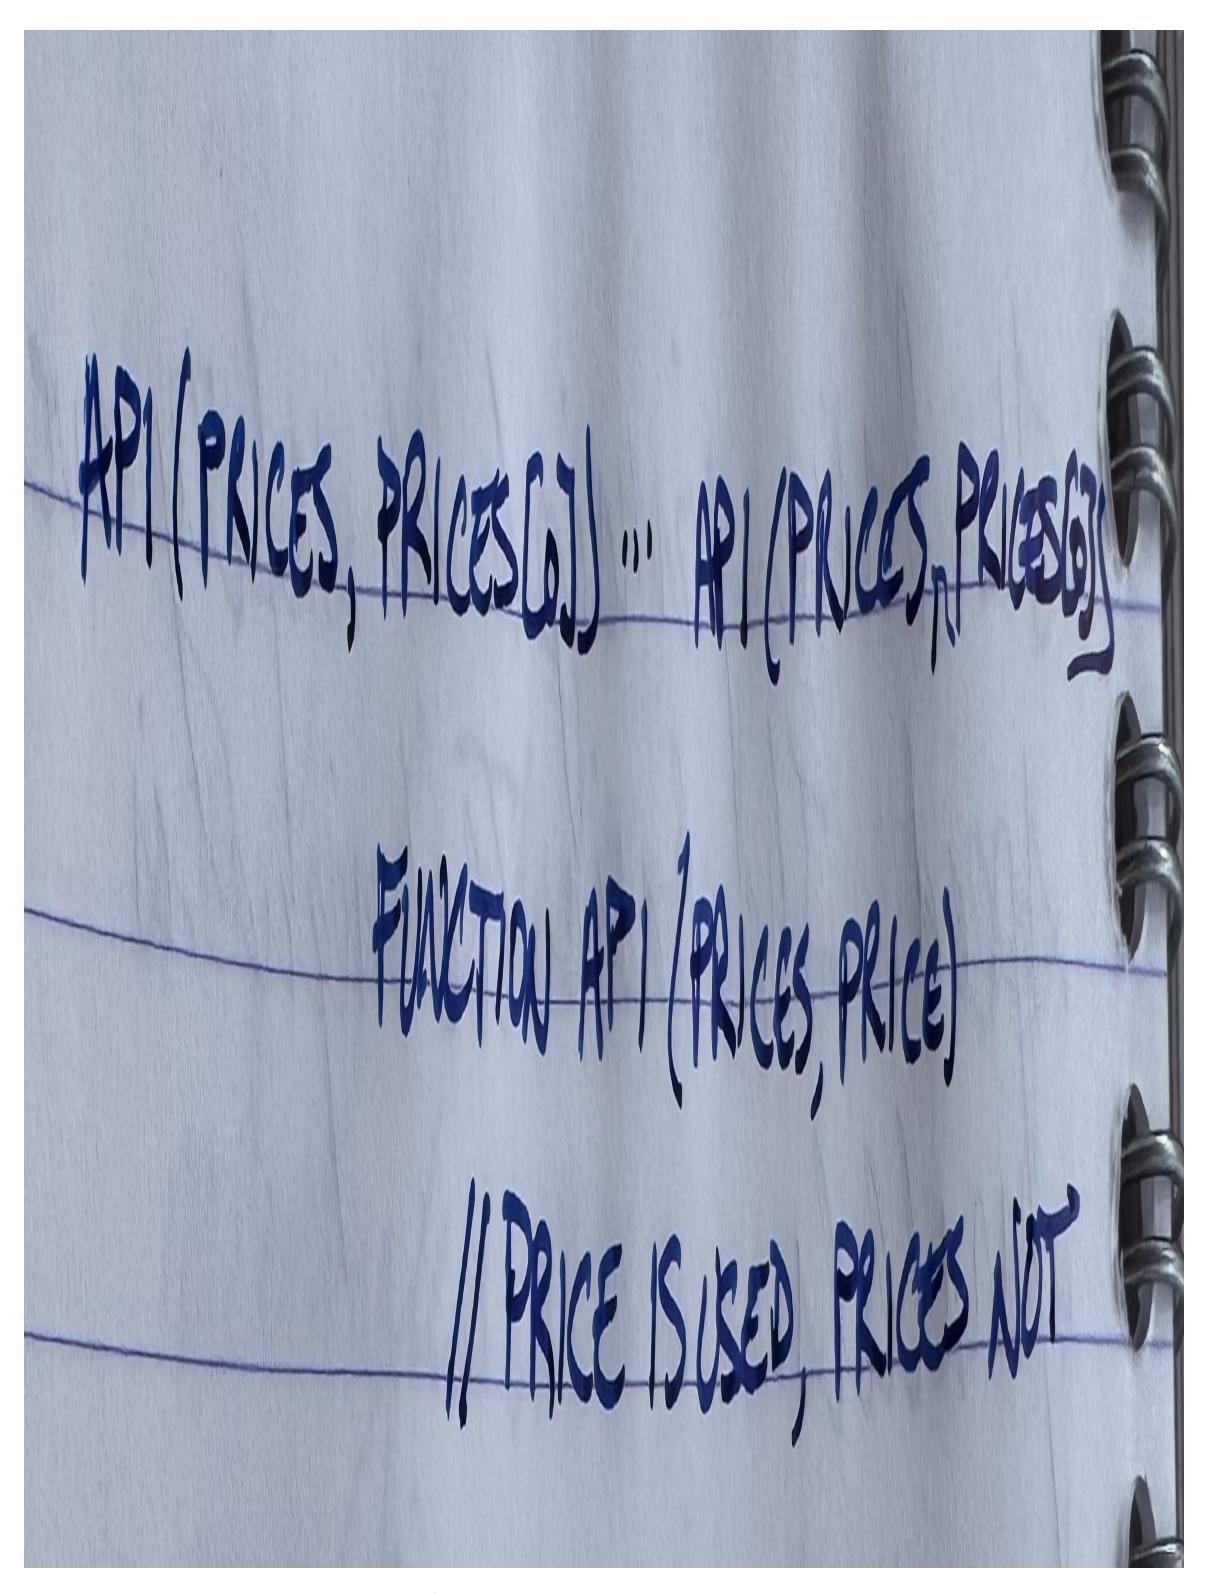 API (PRICES, PRICES[0]) ... API (PRICES, PRICES[0])
FUNCTION API (PRICES, PRICE)
// PRICE IS USED, PRICES NOT